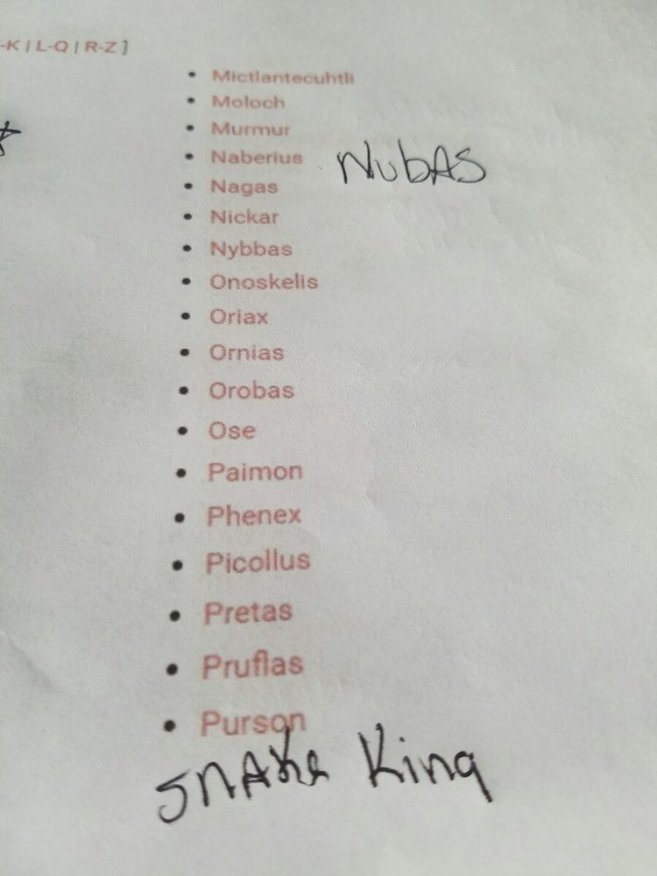 -K | L-Q | R-Z ]
• Mictlantecuhtli
• Moloch
• Murmur
• Naberius NubAS
• Nagas
• Nickar
• Nybbas
• Onoskelis
• Oriax
• Ornias
• Orobas
• Ose
• Paimon
• Phenex
• Picollus
• Pretas
• Pruflas
• Purson
SNAKe King